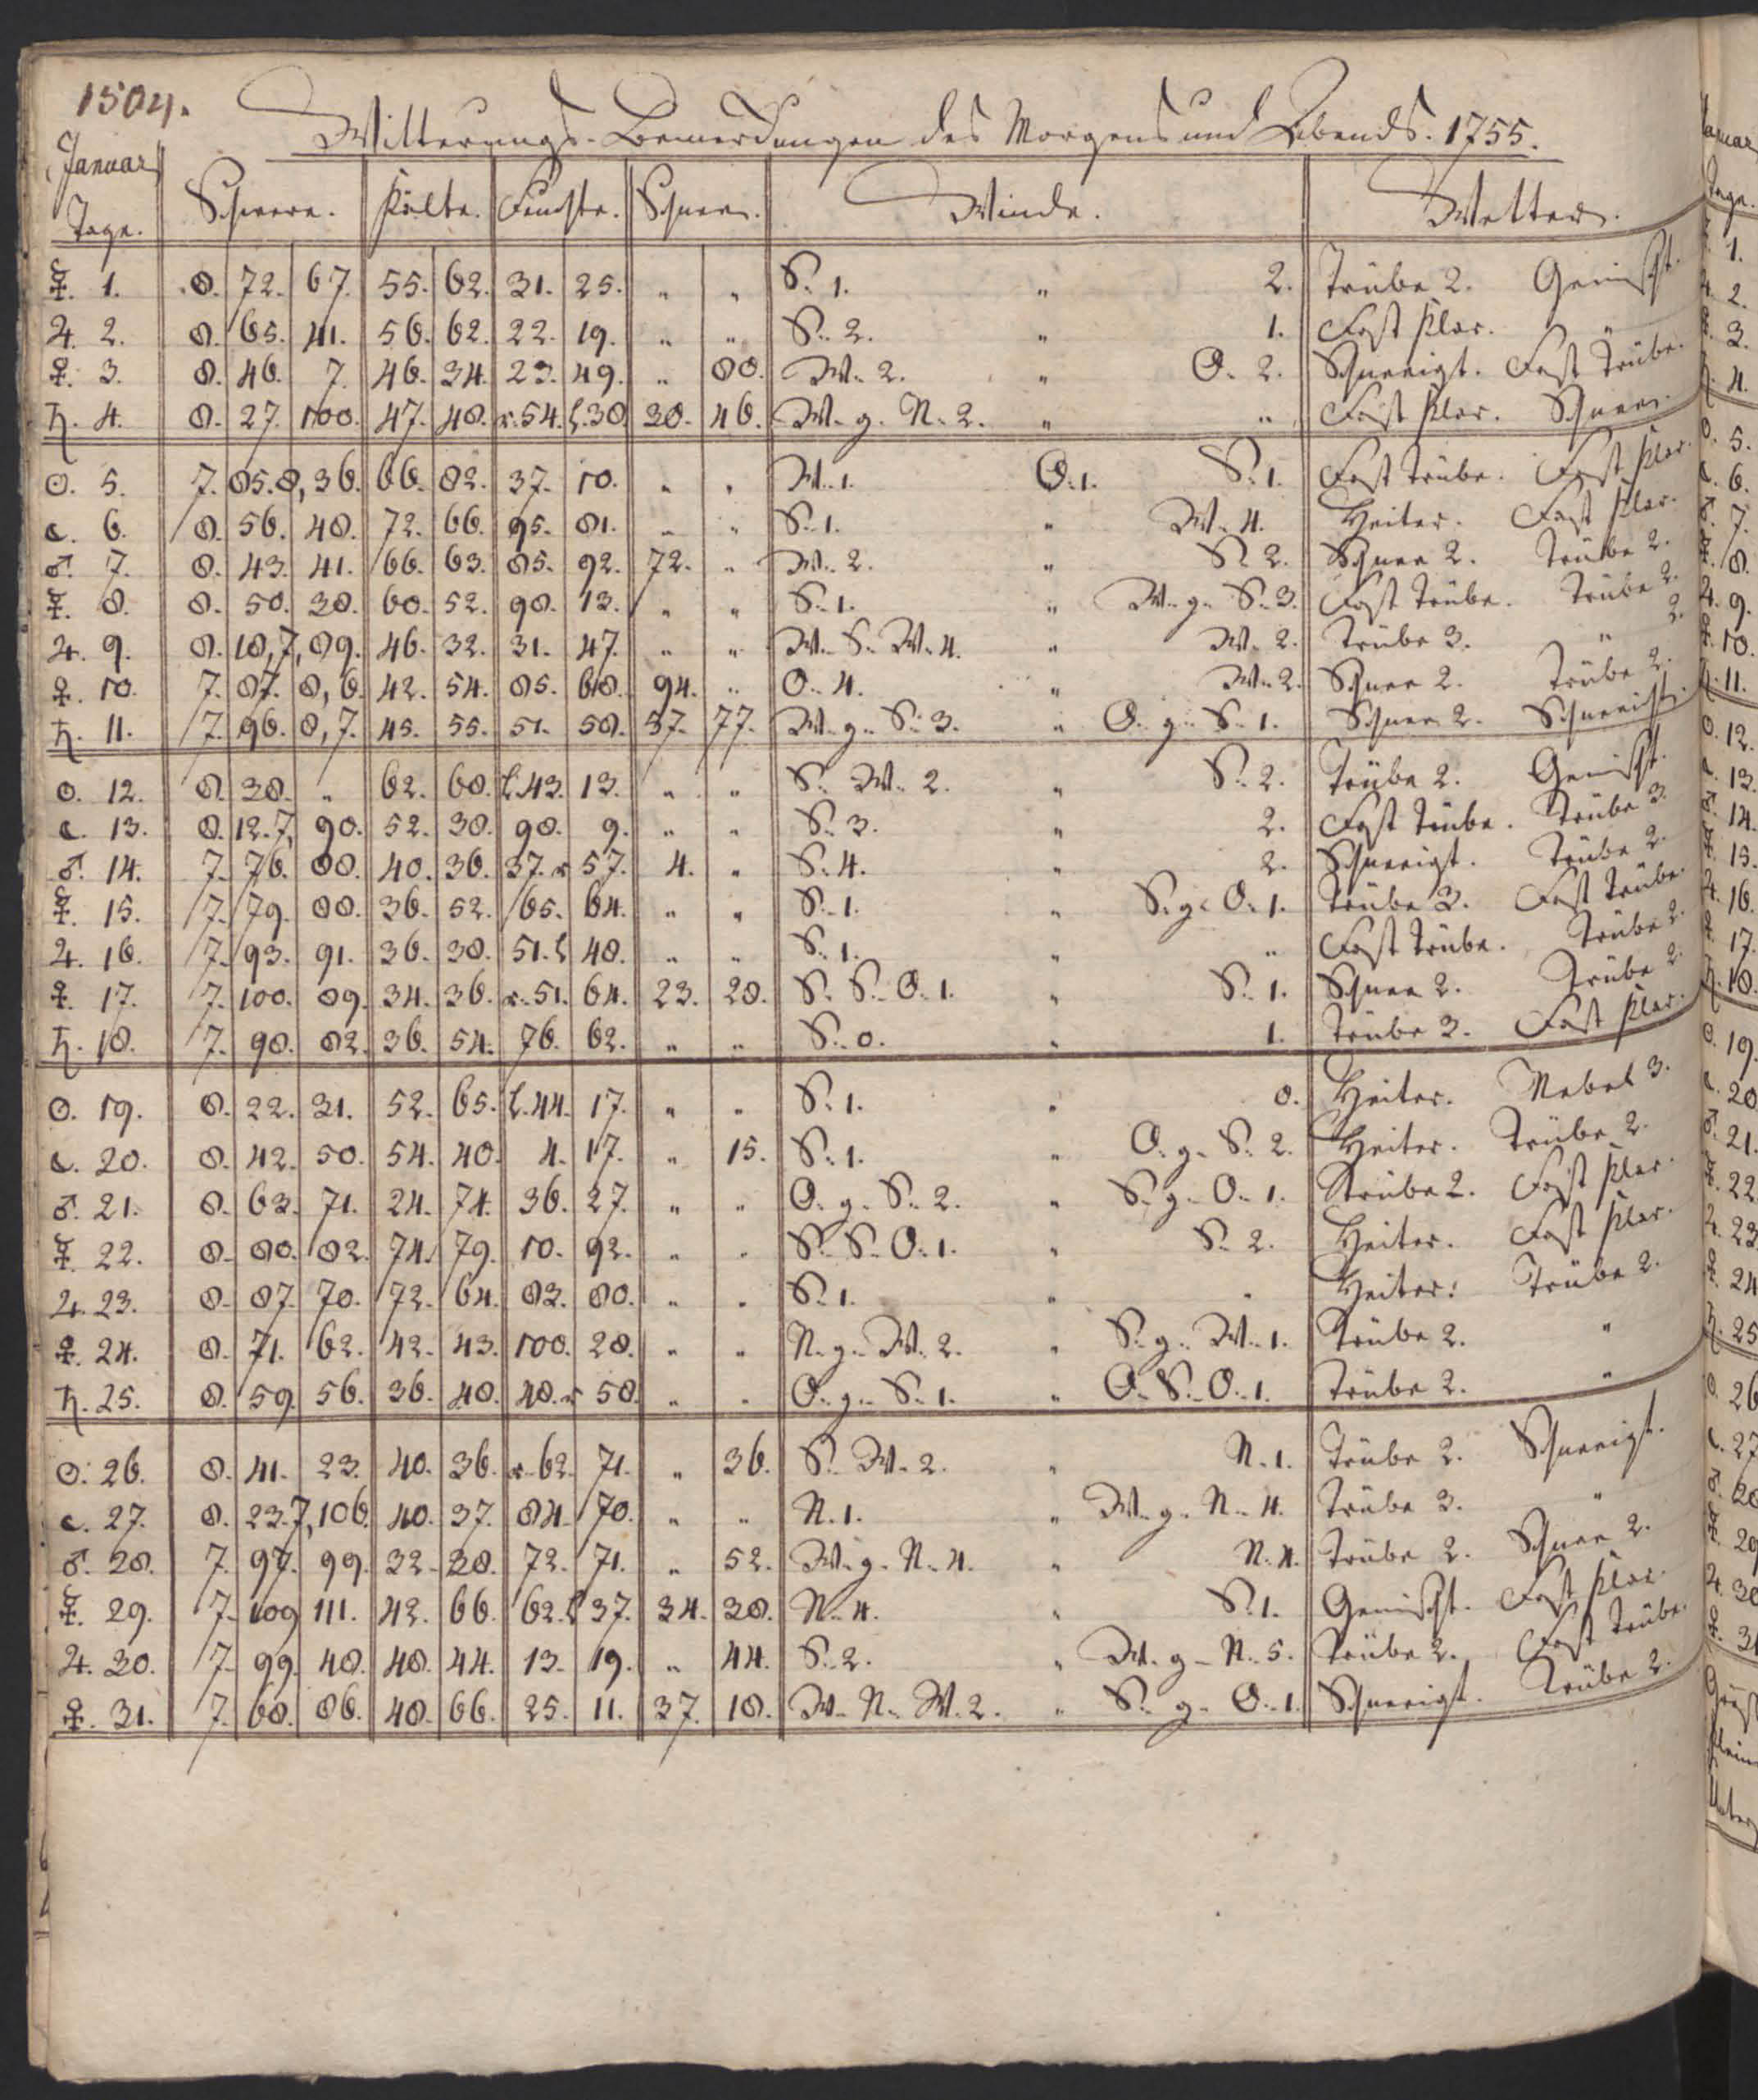 1504.
Witterungs-Bemerckungen des Morgens und Abends. 1755.
Januar
Tage. Schwere. Kälte. Feuchte. Schnee. Winde. Wetter.
☿. 1. 8. 72. 67. 55. 62. 31. 25. " " S. 1. " 2. Trübe 2. Gemischt.
♃. 2. 8. 65. 41. 56. 62. 22. 19. " " S. 2. " 1. Fast klar. "
♀. 3. 8. 46. 7. 46. 34. 23. 49. " 80. W. 2. " O. 2. Schneeigt. Fast trübe.
♄. 4. 8. 27. 100. 47. 48. r. 54. l. 38. 38. 46. W. g. N. 2. " " Fast klar. Schnee.
☉. 5. 7. 85. 8, 36. 66. 82. 37. 10. " " W. 1. O. 1. S. 1. Fast trübe. Fast klar.
☾. 6. 8. 56. 48. 72. 66. 95. 81. " " S. 1. " W. 4. Heiter. Fast klar.
♂. 7. 8. 43. 41. 66. 63. 85. 92. 72. " W. 2. " S. 2. Schnee 2. Trübe 2.
☿. 8. 8. 50. 38. 60. 52. 98. 13. " " S. 1. " W. g. S. 3. Fast trübe. Trübe 2.
♃. 9. 8. 18, 7, 89. 46. 32. 31. 47. " " W. S. W. 4. " W. 2. Trübe 3. " 2.
♀. 10. 7. 87. 8, 6. 42. 54. 85. 68. 94. " O. 4. " W. 2. Schnee 2. Trübe 2.
♄. 11. 7. 96. 8, 7. 45. 55. 51. 58. 57. 77. W. g. S. 3. " O. g. S. 1. Schnee 2. Schneeicht.
☉. 12. 8. 38. " 62. 68. l. 43. 13. " " S. W. 2. " S. 2. Trübe 2. Gemischt.
☾. 13. 8. 12. 7, 90. 52. 38. 98. 9. " " S. 3. " 2. Fast trübe. Trübe 3.
♂. 14. 7. 76. 88. 40. 36. 37. r 57. 4. " S. 4. " 2. Schneeigt. Trübe 2.
☿. 15. 7. 79. 88. 36. 52. 65. 64. " " S. 1. " S. g. O. 1. Trübe 3. Fast trübe.
♃. 16. 7. 93. 91. 36. 38. 51. l 48. " " S. 1. " " Fast trübe. Trübe 2.
♀. 17. 7. 100. 89. 34. 36. r. 51. 64. 23. 28. S. S. O. 1. " S. 1. Schnee 2. Trübe 2.
♄. 18. 7. 98. 82. 36. 54. 76. 62. " " S. 0. " 1. Trübe 3. Fast klar.
☉. 19. 8. 22. 31. 52. 65. l. 44. 17. " " S. 1. " 0. Heiter. Nebel 3.
☾. 20. 8. 42. 50. 54. 40. 4. 17. " 15. S. 1. " O. g. S. 2. Heiter. Trübe 2.
♂. 21. 8. 63. 71. 24. 74. 36. 27. " " O. g. S. 2. " S. g. O. 1. Trübe 2. Fast klar.
☿. 22. 8. 80. 82. 74. 79. 10. 92. " " S. S. O. 1. " S. 2. Heiter. Fast klar.
♃. 23. 8. 87. 70. 72. 64. 83. 80. " " S. 1. " " Heiter. Trübe 2.
♀. 24. 8. 71. 62. 42. 43. 100. 28. " " N. g. W. 2. " S. g. W. 1. Trübe 2. "
♄. 25. 8. 59. 56. 36. 40. 48. r 58. " " O. g. S. 1. " O. S. O. 1. Trübe 2. "
☉. 26. 8. 41. 23. 40. 36. r. 62. 71. " 36. S. W. 2. " N. 1. Trübe 2. Schneeigt.
☾. 27. 8. 23. 7, 106. 40. 37. 84. 70. " " N. 1. " W. g. N. 4. Trübe 3. "
♂. 28. 7. 97. 99. 32. 28. 72. 71. " 52. W. g. N. 4. " N. 4. Trübe 2. Schnee 2.
☿. 29. 7. 109 111. 42. 66. 62. l 37. 34. 38. N. 4. " S. 1. Gemischt. Fast klar.
♃. 30. 7. 99. 48. 48. 44. 13. 19. " 44. S. 2. " W. g. N. 5. Trübe 2. Fast trübe.
♀. 31. 7. 68. 86. 48. 66. 25. 11. 37. 18. W. N. W. 2. " S. g. O. 1. Schneeigt. Trübe 2.